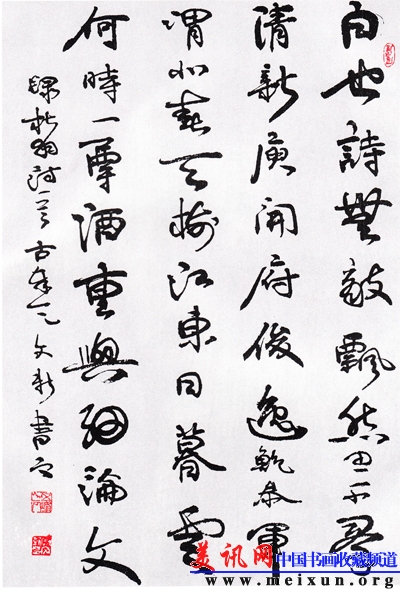 白也詩無敵飄然思不羣
清新庾開府俊逸鮑參軍
渭北春天樹江東日暮雲
何時一尊酒重與細論文
錄杜詩一首古文新書
美讯网中国书画收藏频道
www.meixun.org